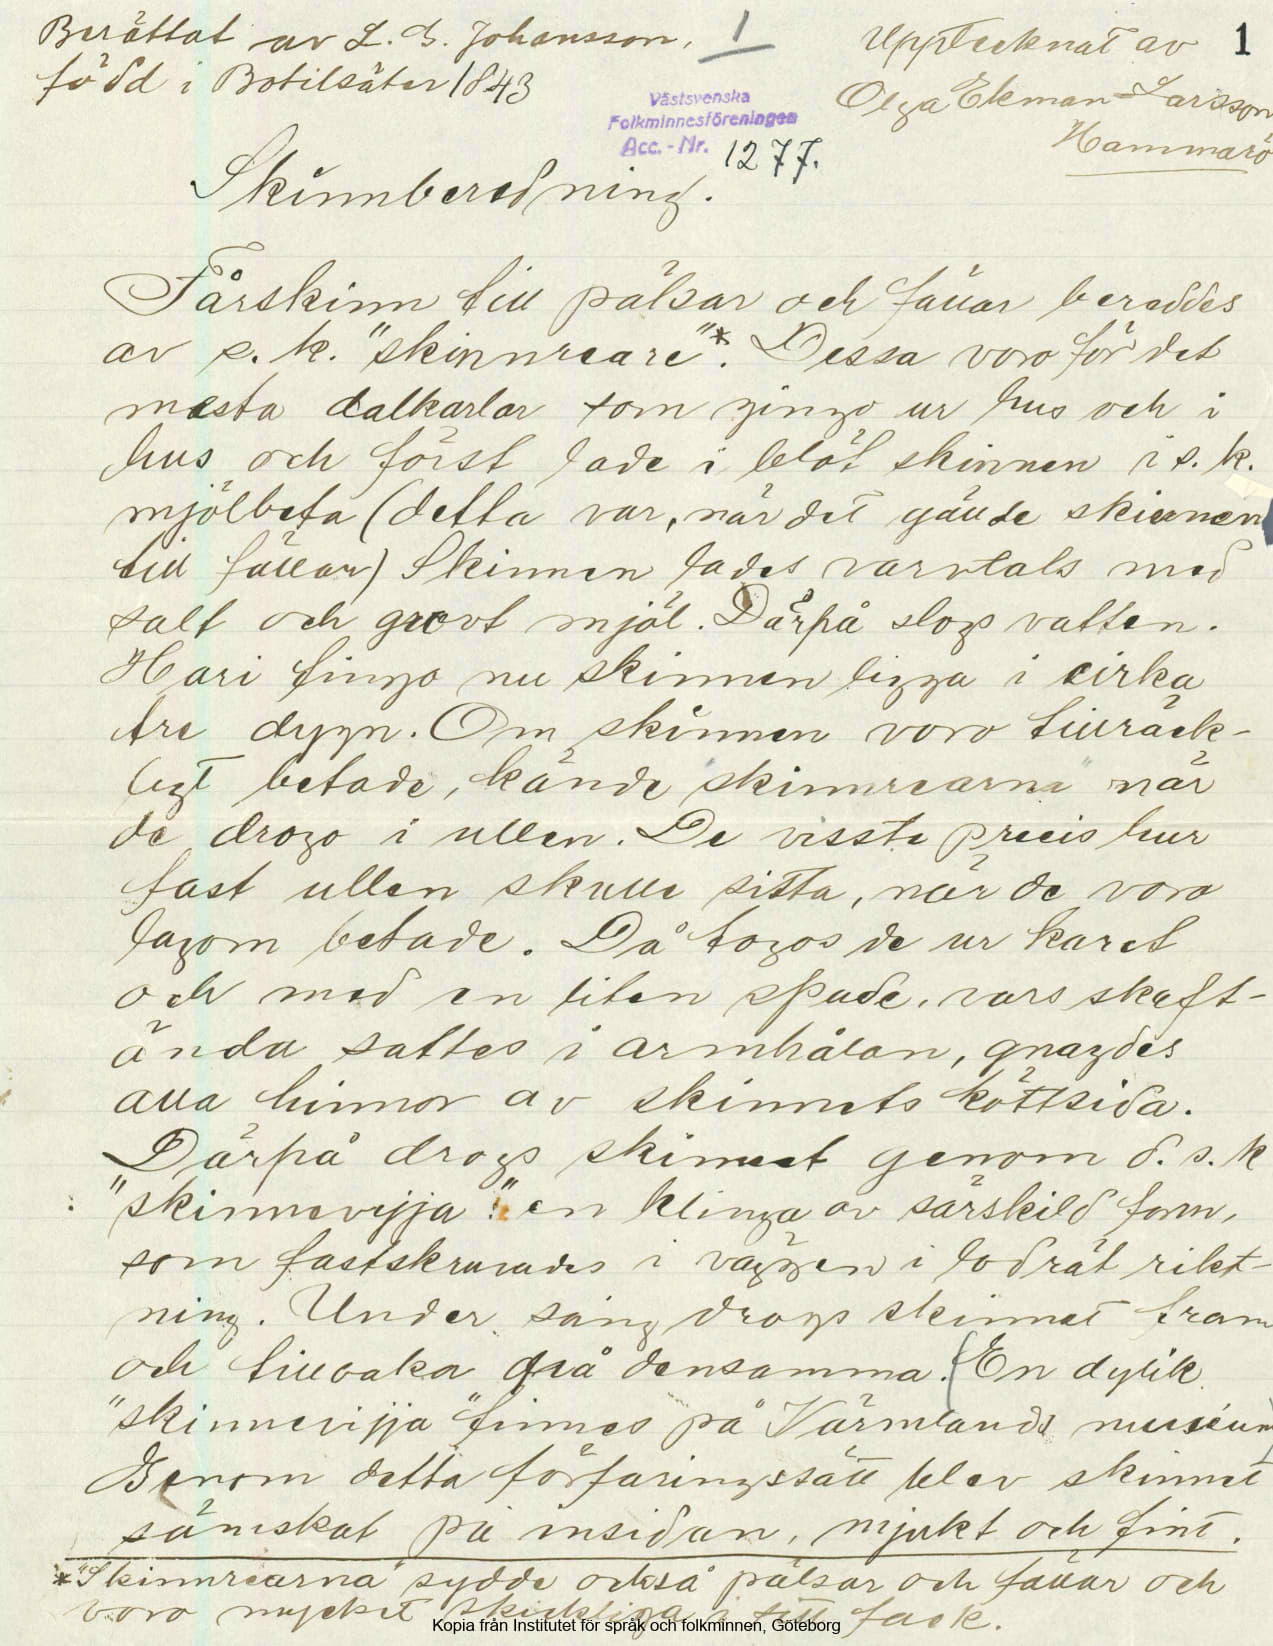 Berättat av L. G. Johansson,
född i Botilsäter 1843
1
Upptecknat av
Olga Ekman-Larsson
Hammarö
1
Västsvenska
Folkminnesföreningen
Acc. - Nr. 1277.
Skinnberedning.
Fårskinn till pälsar och fällar bereddes
av s. k. "skinnreare"*. Dessa voro för det
mesta dalkarlar som gingo ur hus och i
hus och först lade i blöt skinnen i s. k.
mjölbeta (detta var, när det gällde skinnen
till fällar) Skinnen lades varvtals med
salt och grovt mjöl. Därpå slogs vatten.
Häri fingo nu skinnen ligga i cirka
tre dygn. Om skinnen voro tillräck-
ligt betade, kände "skinnrearna" när
de drogo i ullen. De visste precis hur
fast ullen skulle sitta, när de voro
lagom betade. Då togos de ur karet
och med en liten spade, vars skaft-
ända sattes i armhålan, gnagdes
alla hinnor av skinnets köttsida.
Därpå drogs skinnet genom d. s. k
"skinnevijja", en klinga av särskild form,
som fastskruvades i väggen i lodrät rikt-
ning. Under sång drogs skinnet fram
och tillbaka på densamma. (En dylik
"skinnevijja" finnes på Värmlands museum)
Genom detta förfaringssätt blev skinnet
sämskat på insidan, mjukt och fint.
* "Skinnrearna" sydde också pälsar och fällar och
voro mycket skickliga i sitt fack.
Kopia från Institutet för språk och folkminnen, Göteborg